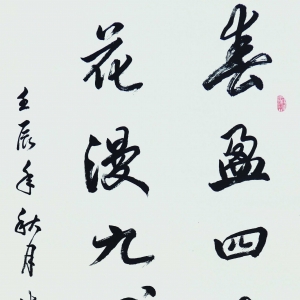 春盈四
花漫九
壬辰年秋月